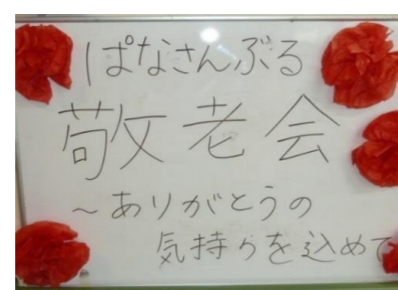 ぱなさんぶる
敬老会
~ありがとうの
気持ちを込めて